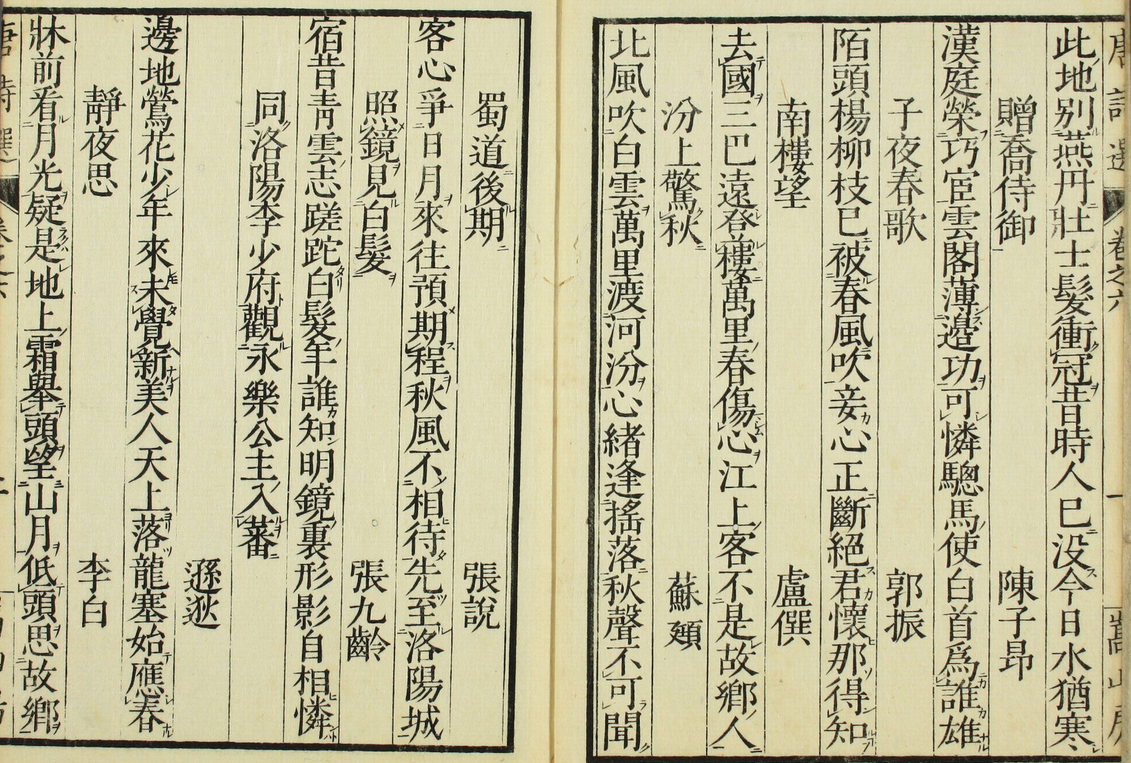 唐詩選 卷之六 一 嵩山房
此地別燕丹壯士髮衝冠昔時人已没今日水猶寒
贈喬侍御 陳子昂
漢庭榮巧宦雲閣薄邊功可憐驄馬使白首爲誰雄
子夜春歌 郭振
陌頭楊柳枝已被春風吹妾心正斷絕君懷那得知
南樓望 盧僎
去國三巴遠登樓萬里春傷心江上客不是故鄉人
汾上驚秋 蘇頲
北風吹白雲萬里渡河汾心緒逢搖落秋聲不可聞
蜀道後期 張說
客心爭日月來往預期程秋風不相待先至洛陽城
照鏡見白髮 張九齡
宿昔青雲志蹉跎白髮年誰知明鏡裏形影自相憐
同洛陽李少府觀永樂公主入蕃
遜逖
邊地鶯花少年來未覺新美人天上落龍塞始應春
靜夜思 李白
牀前看月光疑是地上霜舉頭望山月低頭思故鄉
唐詩選 卷之六